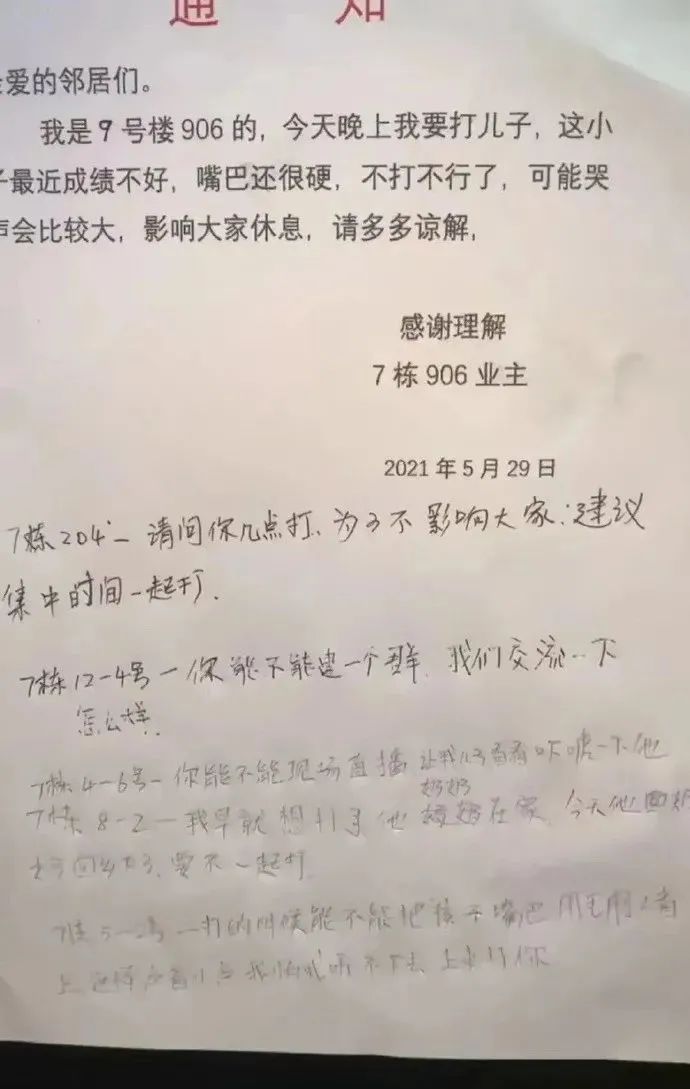 通 知
爱的邻居们。
我是9号楼906的，今天晚上我要打儿子，这小
子最近成绩不好，嘴巴还很硬，不打不行了，可能哭
声会比较大，影响大家休息，请多多谅解，
感谢理解
7栋906业主
2021年5月29日
7栋204一请问你几点打、为了不影响大家:建议
集中时间一起打.
7栋12-4号一你能不能建一个群.我们交流一下
怎么样.
7栋4-6号-你能不能现场直播 让我儿子看看吓唬一下他
奶奶
7栋8-2一我早就想打了他 在家.今天他
回 了.要不一起打.
一打的时候能不能把孩子嘴巴用毛
上 我怕我听不下去 上来打你